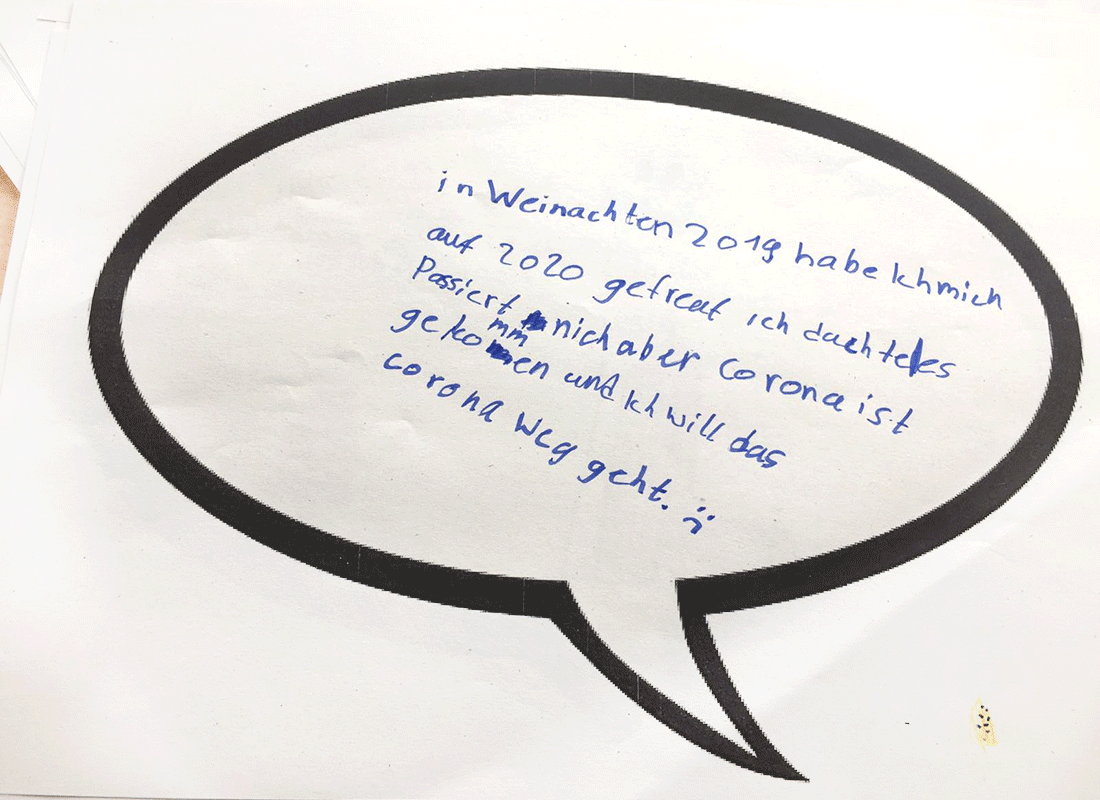 in Weinachten 2019 habe Ich mich
auf 2020 gefreut ich dachte es
Passiert nich aber Corona ist
gekommen und Ich will das
corona weg geht. :(